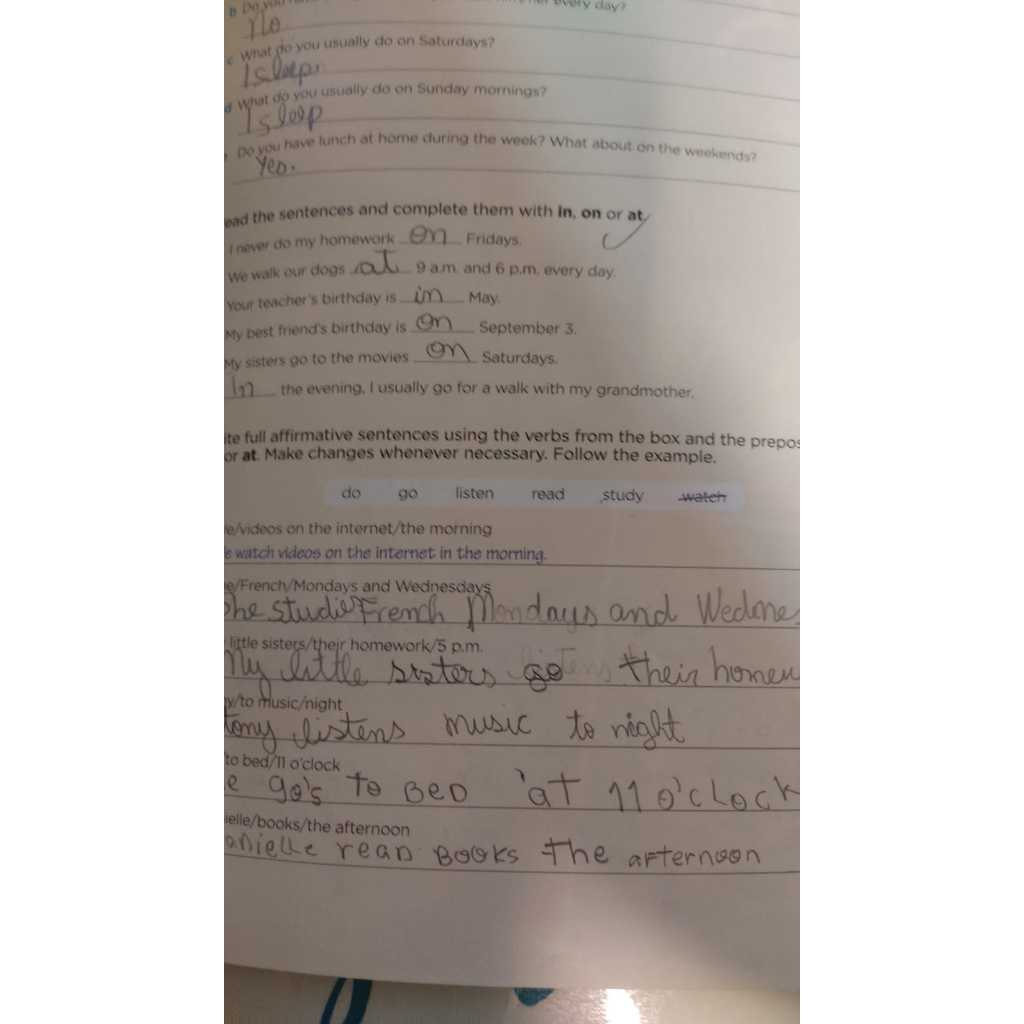 b Do you every day?
No
c What do you usually do on Saturdays?
I sleep.
d What do you usually do on Sunday mornings?
I sleep
Do you have lunch at home during the week? What about on the weekends?
Yes.
ead the sentences and complete them with in, on or at.
I never do my homework on Fridays.
We walk our dogs at 9 a.m. and 6 p.m. every day.
Your teacher's birthday is in May.
My best friend's birthday is on September 3.
My sisters go to the movies on Saturdays.
In the evening, I usually go for a walk with my grandmother.
ite full affirmative sentences using the verbs from the box and the prepos
or at. Make changes whenever necessary. Follow the example.
do go listen read study watch
e/videos on the internet/the morning
e watch videos on the internet in the morning.
e/French/Mondays and Wednesdays
She studies French Mondays and Wednes
little sisters/their homework/5 p.m.
My little sisters go their homew
y/to music/night
tony listens music to night
to bed/11 o'clock
e go's to BeD at 11 o'cLock
ielle/books/the afternoon
anielle reaD BOOKS the afternoon